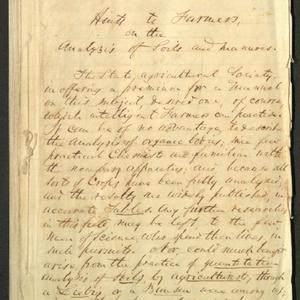 Hints to Farmers,
on the
Analysis of Soils and manures.
The State Agricultural Society
in offering a premium for a manual
on this subject desired one, of course,
which intelligent Farmers can practice.
It can be of no advantage to describe
the analysis of organic bodies, since few
practical Chemists are furnished with
the necessary apparatus, and because all
sorts of Crops have been fully analysed,
and the results are widely published, in
accurate Tables. Any further researches
in this field may be left to the
men of science, who spend their lives in
such pursuits. Nor could much benefit
arise from the practice of quantitative
analysis of Soils by agriculturists, though
a Liebig, or a Bunsen were among us,